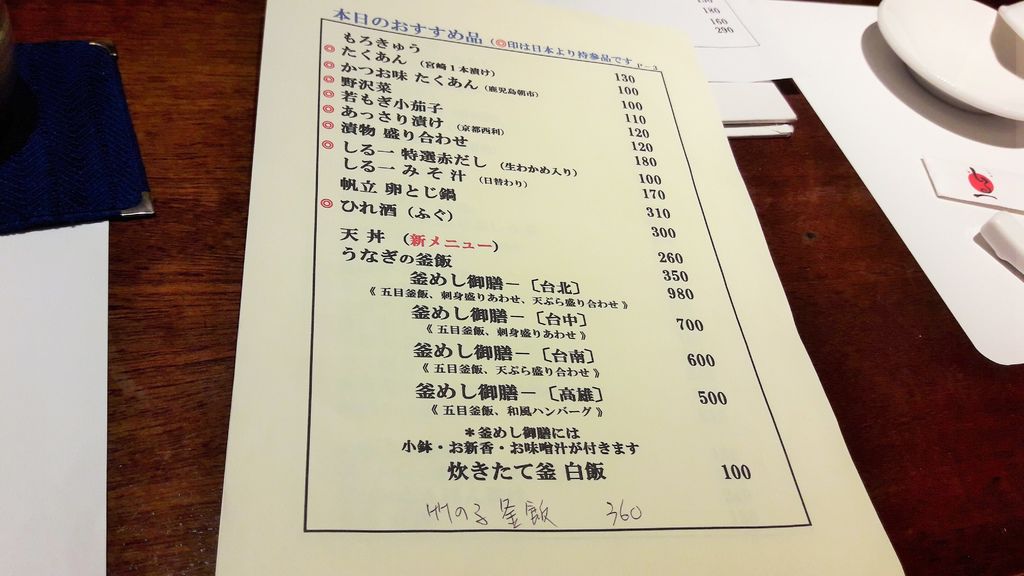 本日のおすすめ品 (◎印は日本より持参品です P-3
もろきゅう 130
◎ たくあん (宮崎1本漬け) 100
◎ かつお味 たくあん (鹿児島朝市) 100
◎ 野沢菜 110
◎ 若もぎ小茄子 120
◎ あっさり漬け (京都西利) 120
◎ 漬物 盛り合わせ 180
◎ しる一 特選赤だし (生わかめ入り) 100
しる一 みそ汁 (日替わり) 170
帆立 卵とじ鍋 310
◎ ひれ酒 (ふぐ) 300
天丼 (新メニュー) 260
うなぎの釜飯 350
釜めし御膳－〔台北〕 980
《 五目釜飯、刺身盛りあわせ、天ぷら盛り合わせ 》
釜めし御膳－〔台中〕 700
《 五目釜飯、刺身盛りあわせ 》
釜めし御膳－〔台南〕 600
《 五目釜飯、天ぷら盛り合わせ 》
釜めし御膳－〔高雄〕 500
《 五目釜飯、和風ハンバーグ 》
＊釜めし御膳には
小鉢・お新香・お味噌汁が付きます
炊きたて釜 白飯 100
竹の子釜飯 360
180
160
290